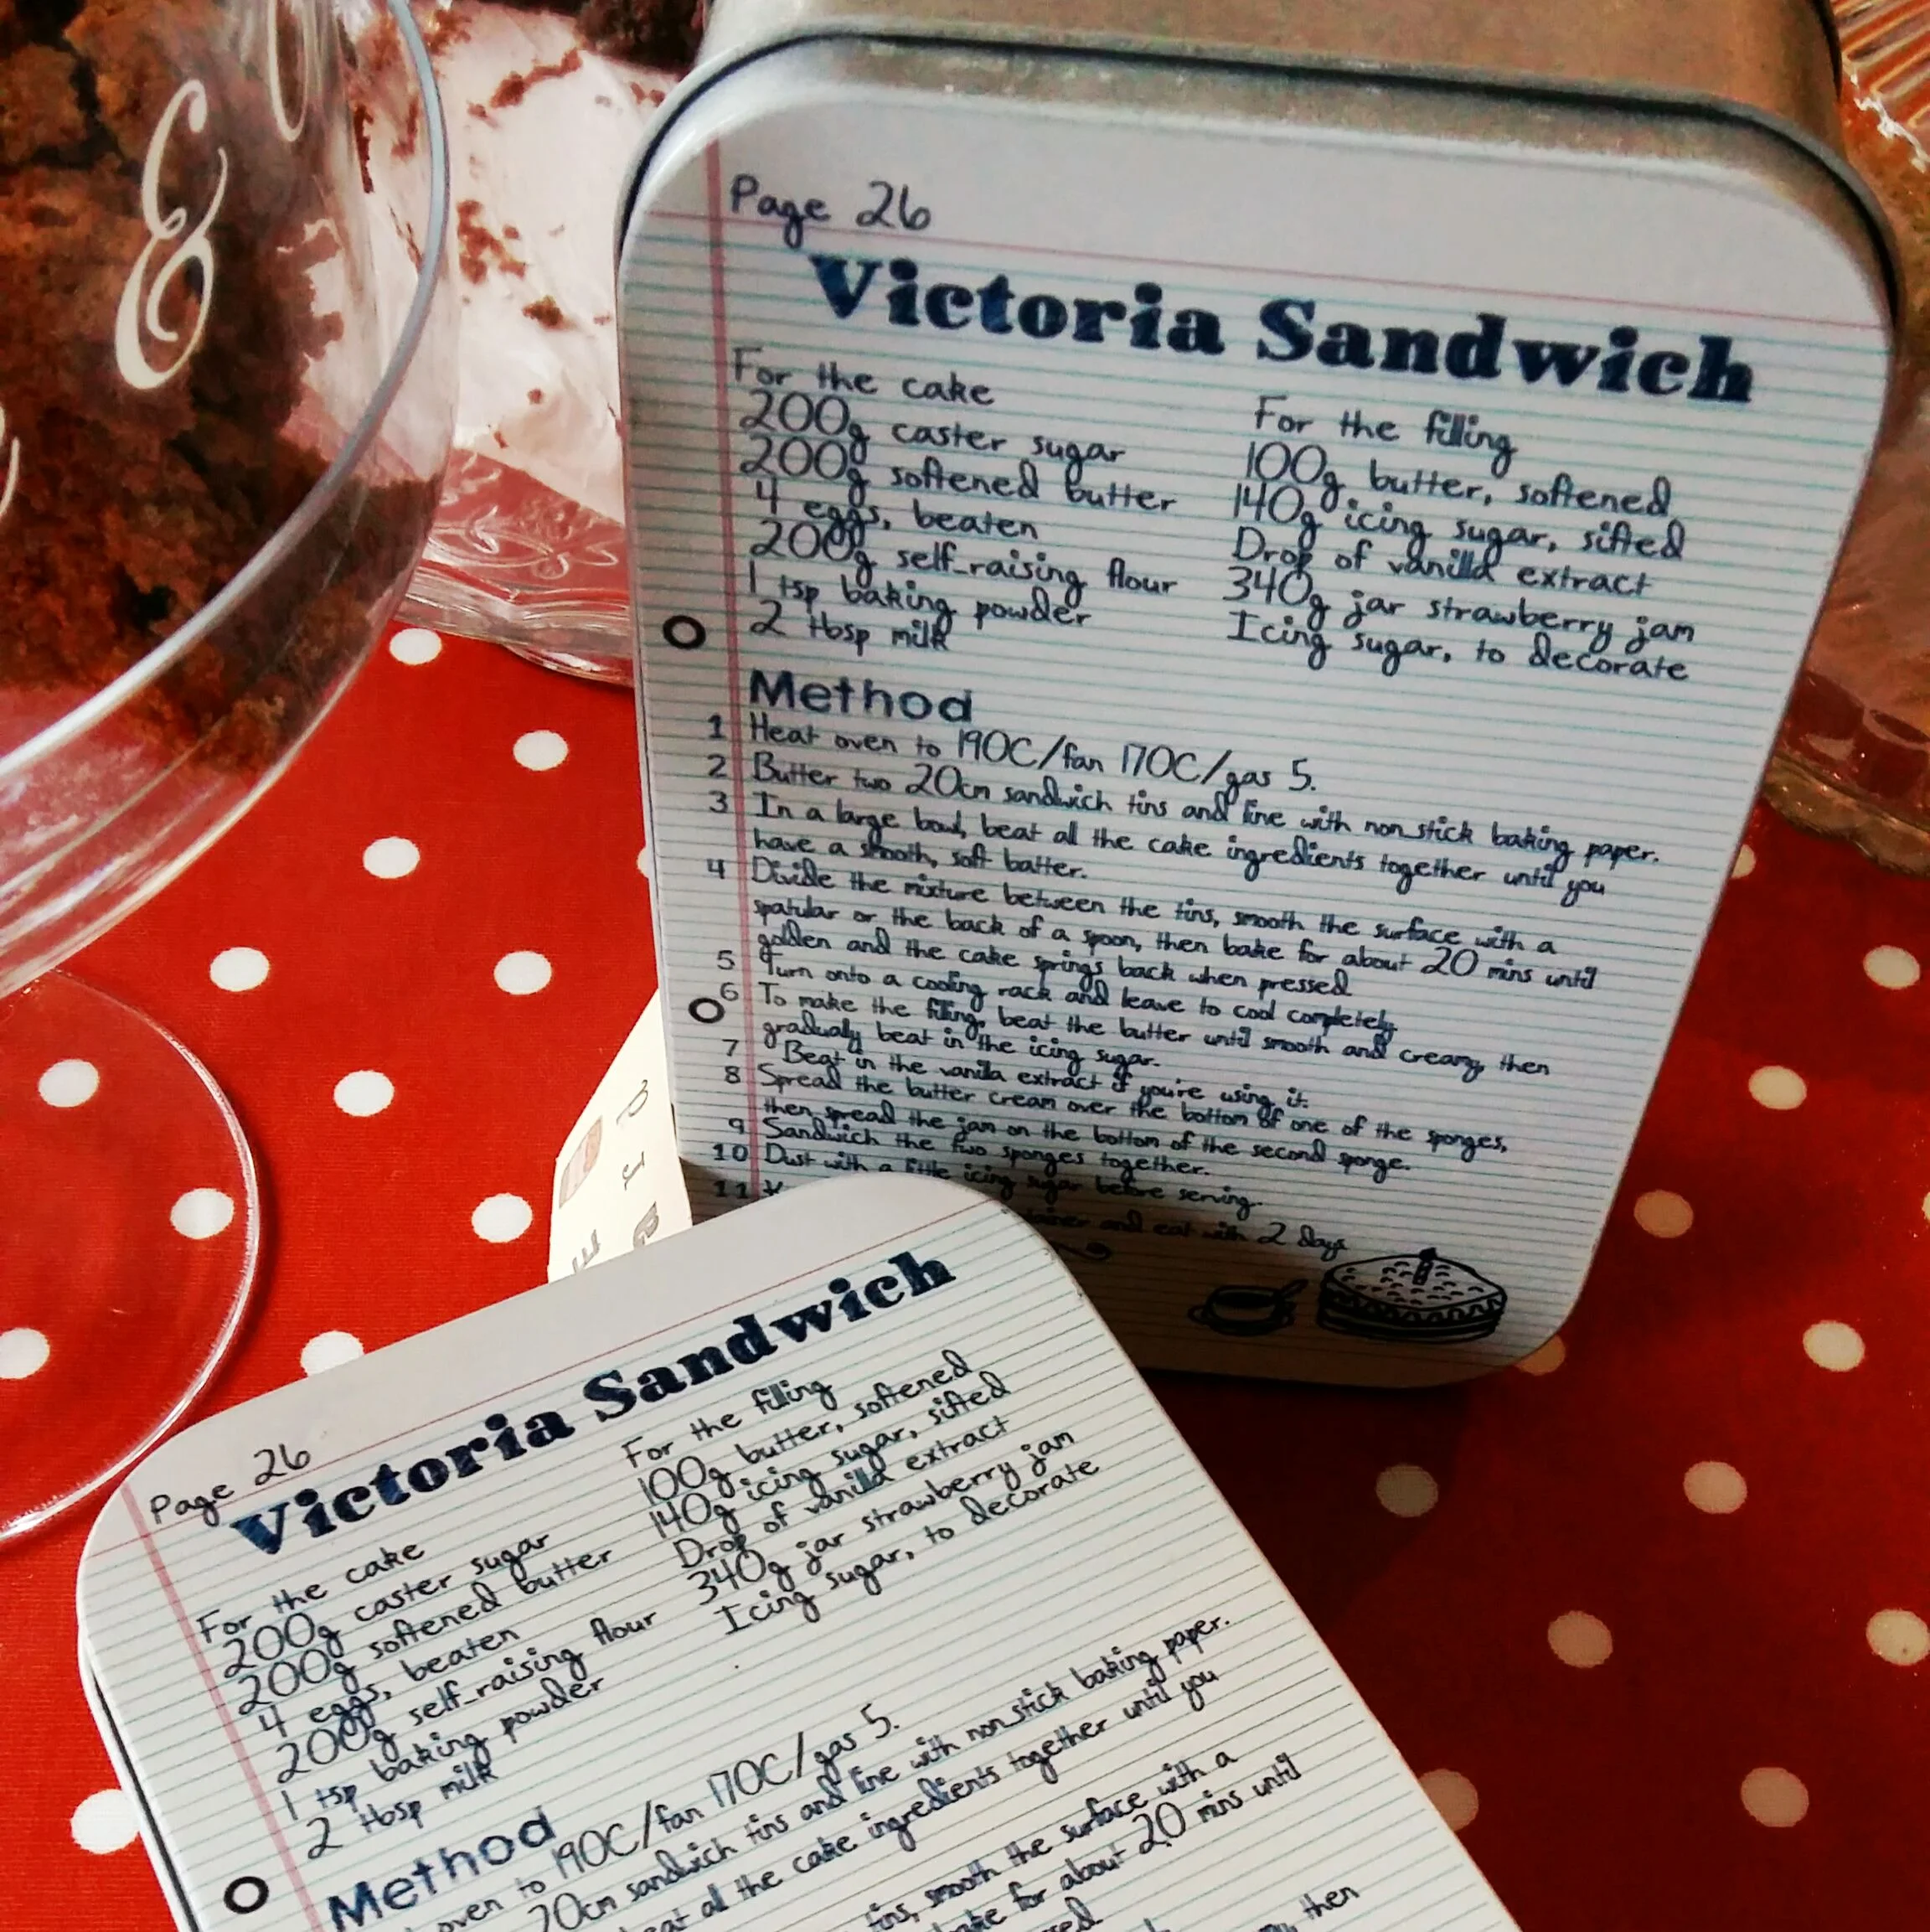 E
Page 26
Victoria Sandwich
For the cake
200g caster sugar
200g softened butter
4 eggs, beaten
200g self-raising flour
1 tsp baking powder
2 tbsp milk
For the filling
100g butter, softened
140g icing sugar, sifted
Drop of vanilla extract
340g jar strawberry jam
Icing sugar, to decorate
Method
1 Heat oven to 190C/fan 170C/gas 5.
2 Butter two 20cm sandwich tins and line with non-stick baking paper.
3 In a large bowl, beat all the cake ingredients together until you
have a smooth, soft batter.
4 Divide the mixture between the tins, smooth the surface with a
spatular or the back of a spoon, then bake for about 20 mins until
golden and the cake springs back when pressed
5 Turn onto a cooling rack and leave to cool completely.
6 To make the filling, beat the butter until smooth and creamy, then
gradualy beat in the icing sugar.
7 Beat in the vanilla extract if you're using it.
8 Spread the butter cream over the bottom of one of the sponges,
then spread the jam on the bottom of the second sponge.
9 Sandwich the two sponges together.
10 Dust with a little icing sugar before serving.
11 and eat with 2 days
Page 26
Victoria Sandwich
For the cake
200g caster sugar
200g softened butter
4 eggs, beaten
200g self-raising flour
1 tsp baking powder
2 tbsp milk
For the filling
100g butter, softened
140g icing sugar, sifted
Drop of vanilla extract
340g jar strawberry jam
Icing sugar, to decorate
Method
oven to 190C/fan 170C/gas 5.
20cm sandwich tins and line with non-stick baking paper.
all the cake ingredients together until you
tins, smooth the surface with a
for about 20 mins until
then